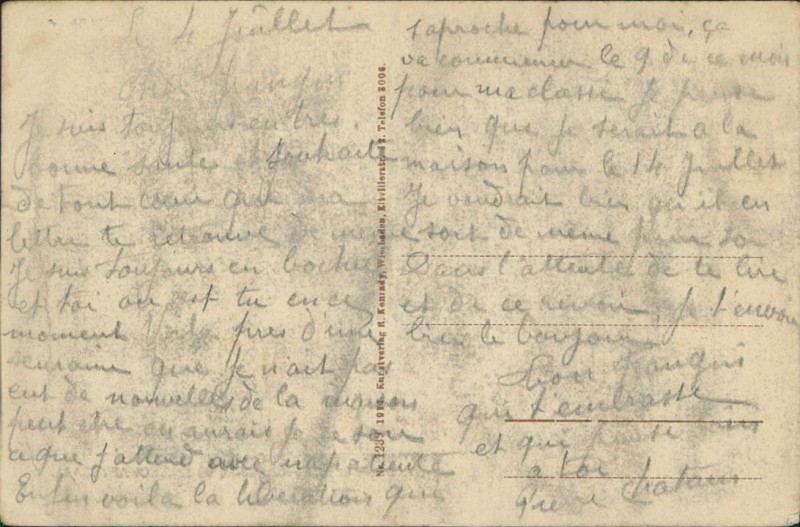 Le 4 Juillet
Cher frangin
Je suis toujours en très
bonne santé et souhaite
de tout cœur que ma
lettre te retrouve de même
Je suis toujours en bochie
et toi ou est tu en ce
moment Voila pres d'une
semaine que je n'ait pas
eut de nouvelles de la maison
peut etre en aurais je ce soir
ce que j'attend avec impatiente
Enfin voila la libération qui
s'aproche pour moi, ça
va commencer le 9 de ce mois
pour ma classe Je pense
bien que je serait a la
maison pour le 14 Juillet
Je voudrait bien qu'il en
soit de meme pour toi
Dans l'attente de te lire
et de ce revoir, Je t'envoie
bien le bonjour
Ton frangin
qui t'embrasse
et que pense
a toi
No. 1239 1914. Kunstverlag R. Konrady, Wiesbaden, Eltvillerstr. Telefon 2006.